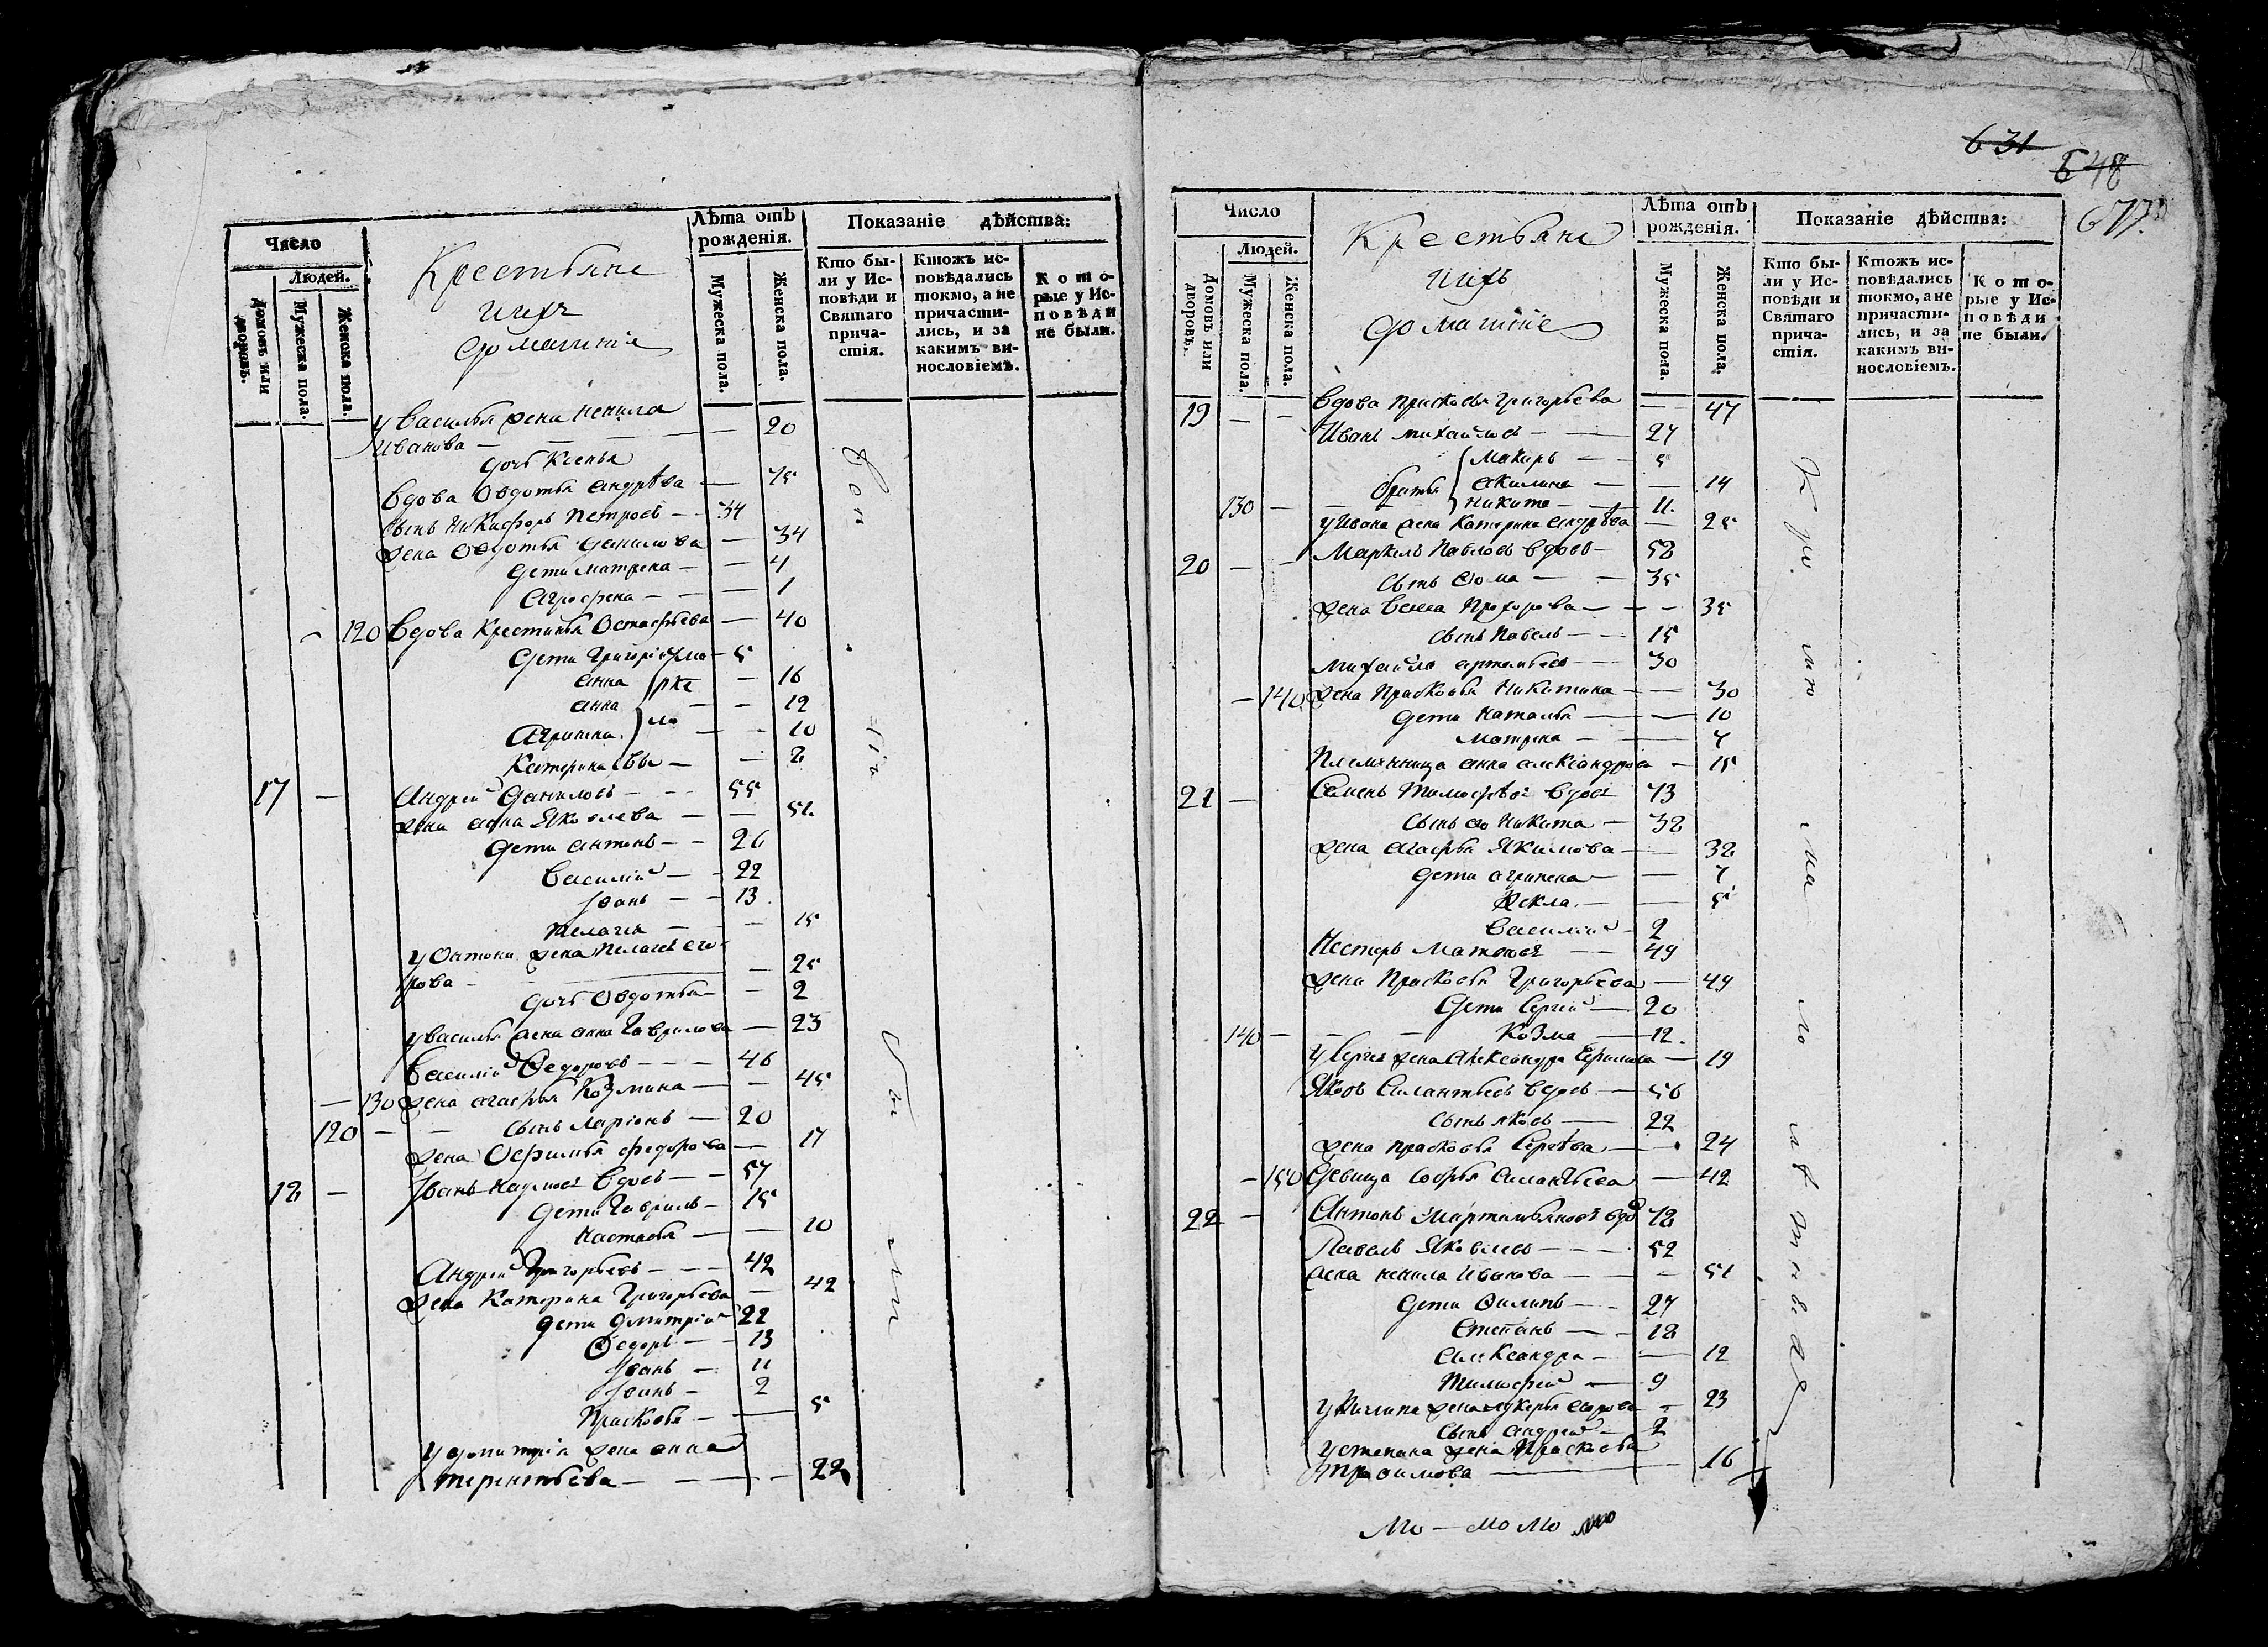 Число
Людей.
Домовъ или дворовъ.
Мужеска пола.
Женска пола.
Крестьяне
ихъ
домашніе
Лѣта отъ рожденія.
Мужеска пола.
Женска пола.
Показаніе дѣйства:
Кто бы-
ли у Ис-
повѣди и
Святаго
прича-
стія.
Ктожъ ис-
повѣдались
токмо, а не
причасти-
лись, и за
какимъ ви-
нословіемъ.
Кото-
рые у Ис-
повѣди
не были.
у Василья жена Ненила
Иванова — 20
дочь Ксенья
Вдова Овдотья Андрѣева — 75
сынъ Никифоръ Петровъ — 34
жена Овдотья Данилова — 34
дети Матрена — 4
Агрофена — 1
120 Вдова Крестинья Остафьева — 40
дети Григорій — 5
Анна — 16
Анна — 12
— 10
Катерина — 2
17 — Андрей Даниловъ — 55
жена Анна Яковлева — 52
дети Антонъ — 26
Василій — 22
Іванъ — 13
Пелагея — 15
у Онтона жена Пелагея Его-
рова — 25
дочь Овдотья — 2
у Василья жена Анна Гаврилова — 23
Василій Федоровъ — 46
130 жена Агафья Козмина — 45
120 — сынъ Ларіонъ — 20
жена Офимья Федорова — 17
18 — Іванъ вдовъ — 57
дети Гаврилъ — 15
Настасья — 10
Андрей Григорьевъ — 42
жена Катерина Григорьева — 42
дети Дмитрій 22
Федоръ — 13
Іванъ — 11
Іванъ — 2
Прасковья — 5
у Дмитрія жена Анна
Терентьева — 22
были
631
648
677
Число
Людей.
Домовъ или дворовъ.
Мужеска пола.
Женска пола.
Крестьяне
ихъ
домашніе
Лѣта отъ рожденія.
Мужеска пола.
Женска пола.
Показаніе дѣйства:
Кто бы-
ли у Ис-
повѣди и
Святаго
прича-
стія.
Ктожъ ис-
повѣдались
токмо, а не
причасти-
лись, и за
какимъ ви-
нословіемъ.
Кото-
рые у Ис-
повѣди
не были.
19 — Вдова Прасковья Григорьева — 47
Иванъ Михайловъ — 27
Макаръ — 5
братья Акилина — 14
130 — Никита — 11
у Ивана жена Катерина Андрѣева — 25
20 — Маркелъ Павловъ вдовъ — 58
сынъ Фома — 35
жена Прохорова — 35
сынъ Павелъ — 15
Михайла Артемьевъ — 30
140 жена Прасковья Никитина — 30
дети Наталья — 10
Матрена — 7
Племянница Анна Александрова — 15
21 — Семенъ Тимофѣевъ вдовъ 73
сынъ его Никита — 32
жена Агафья Якимова — 32
дети Агрипена — 7
Фекла — 5
Василій — 2
Нестеръ — 49
жена Прасковья Григорьева — 49
дети Сергей — 20
140 — Козма — 12
у Сергея жена Александра — 19
Яковъ Силантьевъ вдовъ — 56
сынъ Яковъ — 22
жена Прасковья — 24
150 Девица Софья Силантьева — 42
22 — Антонъ Мартемьяновъ вдо 72
Павелъ Яковлевъ — 52
жена Ненила Иванова — 51
дети Филипъ — 27
Степанъ — 18
Александра — 12
Тимофей — 9
у Филипа жена Лукерья — 23
сынъ Андрей — 2
у Степана жена Прасковья
Трофимова — 16